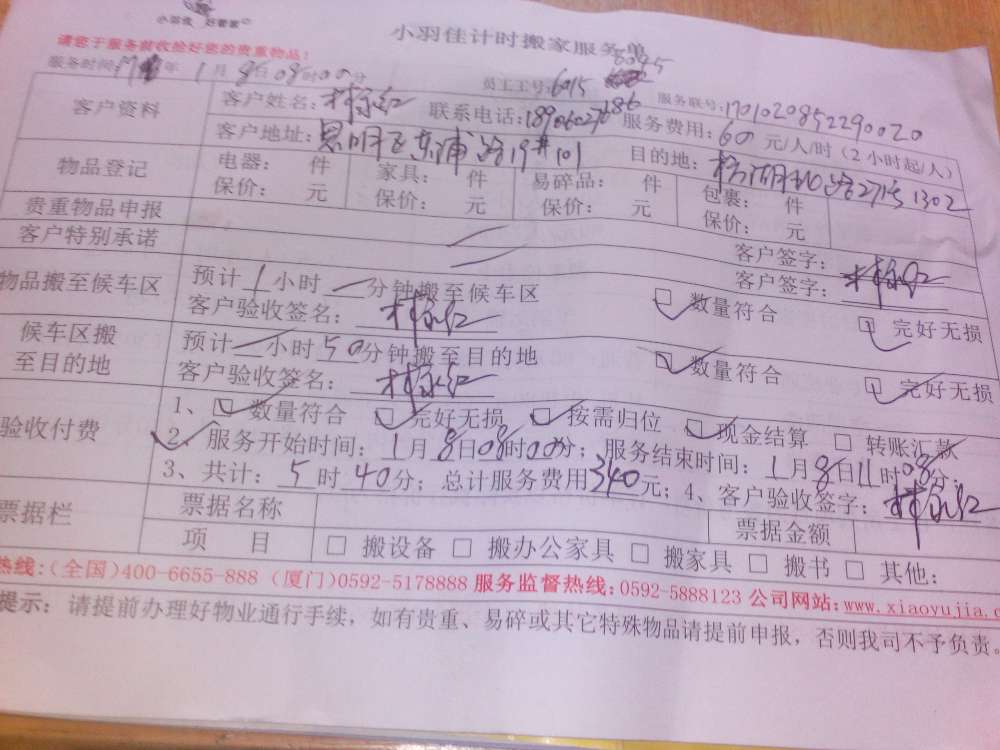 小羽佳 好管家
小羽佳计时搬家服务单
请您于服务前收捡好您的贵重物品！
8045
服务时间: 17年 1月8日08时00分 员工工号: 6015 服务联号: 1701020852290020
客户资料 客户姓名: 林永红 联系电话: 服务费用: 60 元/人/时（2小时起/人）
客户地址: 思明区东浦路19#101 目的地: 路27号1302
物品登记 电器: 件 家具: 件 易碎品: 件 包裹: 件
保价: 元 保价: 元 保价: 元 保价: 元
贵重物品申报 客户签字:
客户特别承诺 客户签字: 林永红
物品搬至候车区 预计1小时 一分钟搬至候车区 数量符合 完好无损
客户验收签名: 林永红
候车区搬至目的地 预计一小时50分钟搬至目的地 数量符合 完好无损
客户验收签名: 林永红
验收付费 1、数量符合 完好无损 按需归位 现金结算 转账汇款
2、服务开始时间: 1月8日08时00分；服务结束时间: 1月8日11时08分；
3、共计: 5时40分；总计服务费用340元；4、客户验收签字: 林永红
票据栏 票据名称 票据金额
项 目 □ 搬设备 □ 搬办公家具 □ 搬家具 □ 搬书 □ 其他:
热线:（全国）400-6655-888（厦门）0592-5178888 服务监督热线: 0592-5888123 公司网站: www.xiaoyujia.c
提示: 请提前办理好物业通行手续，如有贵重、易碎或其它特殊物品请提前申报，否则我司不予负责。